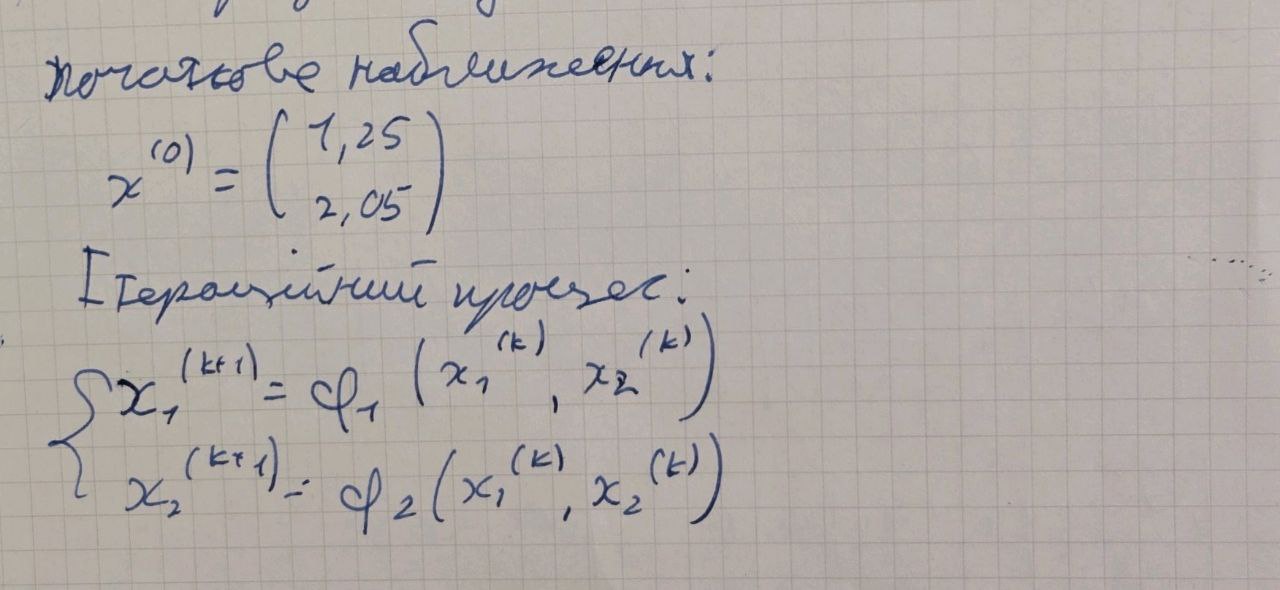 початкове наближення:
x^(0) = (1,25
2,05)
Ітераційний процес:
{x₁^(k+1) = φ₁ (x₁^(k), x₂^(k))
x₂^(k+1) = φ₂ (x₁^(k), x₂^(k))